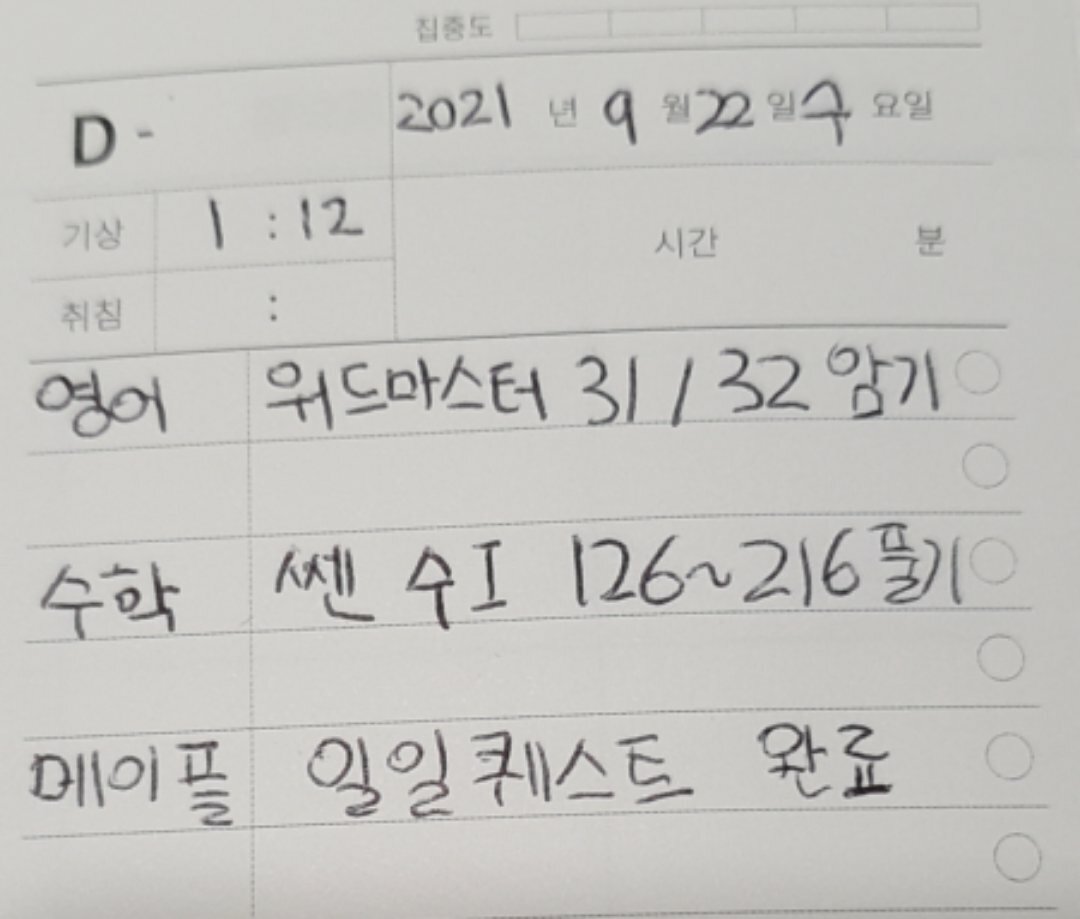 집중도
D - 2021 년 9 월 22 일 수 요일
기상 1 : 12 시간 분
취침 :
영어 워드마스터 31 / 32 암기
수학 쎈 수I 126~216 풀기
메이플 일일퀘스트 완료